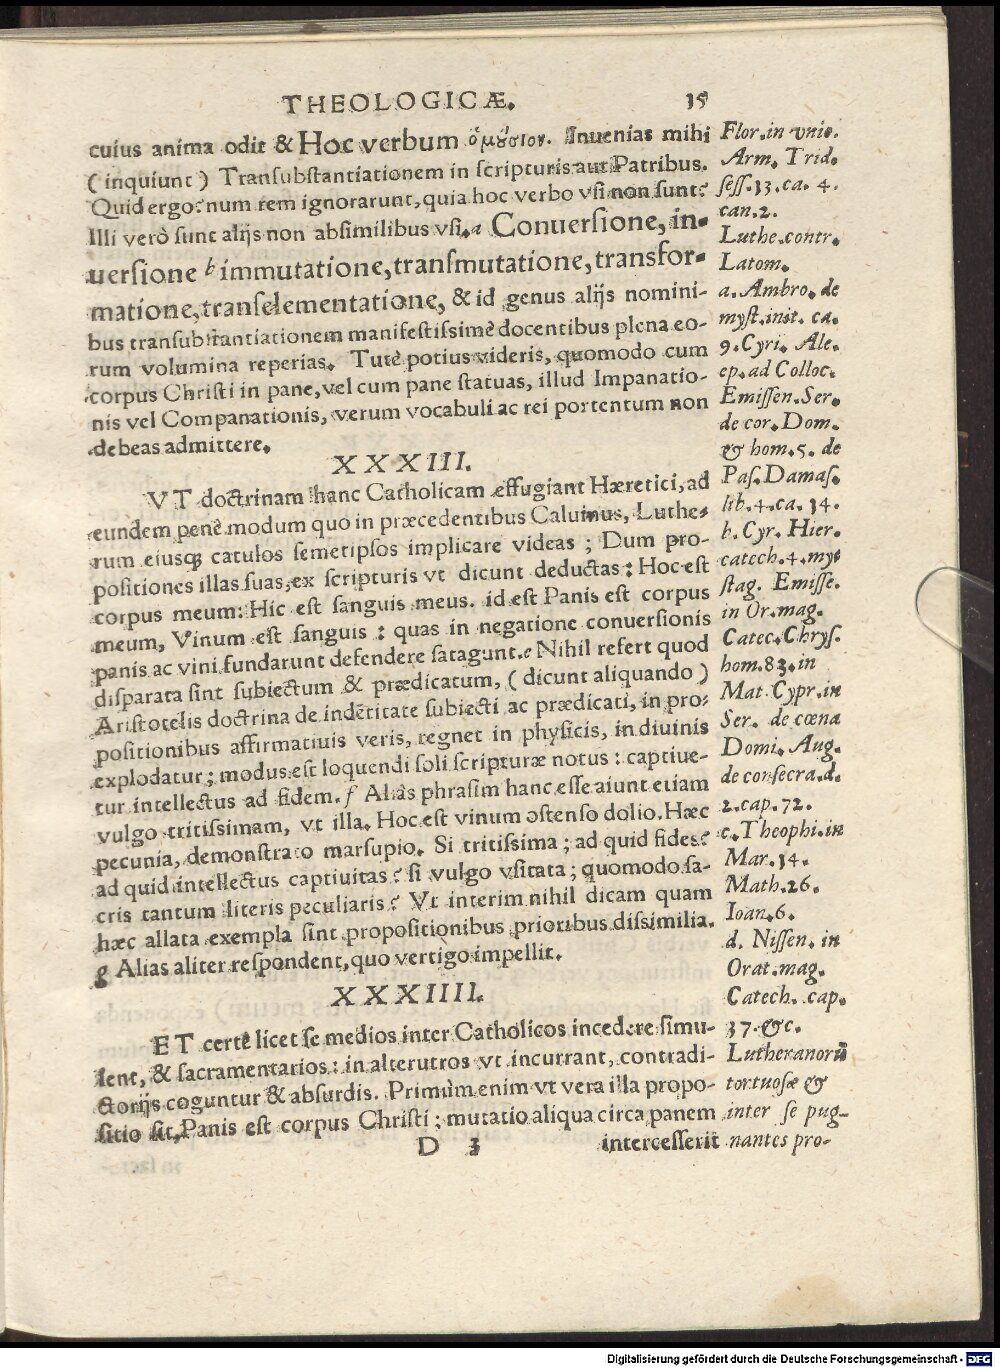 THEOLOGICÆ. 15
cuius anima odit & Hoc verbum ὁμȣ́σιον. Inuenias mihi
(inquiunt) Transubstantiationem in scripturis aut Patribus.
Quid ergo? num rem ignorarunt, quia hoc verbo vsi non sunt?
Illi verò sunt alijs non absimilibus vsi. a Conuersione, in-
uersione b immutatione, transmutatione, transfor-
matione, transelementatione, & id genus alijs nomini-
bus transubstantiationem manifestissimè docentibus plena eo-
rum volumina reperias. Tutè potius videris, quomodo cum
corpus Christi in pane, vel cum pane statuas, illud Impanatio-
nis vel Companationis, verum vocabuli ac rei portentum non
debeas admittere.
XXXIII.
VT doctrinam hanc Catholicam effugiant Hæretici, ad
eundem penè modum quo in præcedentibus Caluinus, Luthe-
rum eiusq; catulos semetipsos implicare videas; Dum pro-
positiones illas suas, ex scripturis vt dicunt deductas: Hoc est
corpus meum: Hic est sanguis meus. id est Panis est corpus
meum, Vinum est sanguis: quas in negatione conuersionis
panis ac vini fundarunt defendere satagunt. e Nihil refert quod
disparata sint subiectum & prædicatum, (dicunt aliquando)
Aristotelis doctrina de indẽtitate subiecti ac prædicati, in pro-
positionibus affirmatiuis veris, regnet in physicis, in diuinis
explodatur; modus est loquendi soli scripturæ notus: captiue-
tur intellectus ad fidem. f Aliàs phrasim hanc esse aiunt etiam
vulgo tritissimam, vt illa. Hoc est vinum ostenso dolio. Hæc
pecunia, demonstrato marsupio. Si tritissima; ad quid fides?
ad quid intellectus captiuitas? si vulgo vsitata; quomodo sa-
cris tantum literis peculiaris? Vt interim nihil dicam quam
hæc allata exempla sint propositionibus prioribus dissimilia.
g Alias aliter respondent, quo vertigo impellit.
XXXIIII.
ET certè licet se medios inter Catholicos incedere simu-
lent, & sacramentarios: in alterutros vt incurrant, contradi-
ctorijs coguntur & absurdis. Primùm enim vt vera illa propo-
sitio sit, Panis est corpus Christi; mutatio aliqua circa panem
D 3 intercesserit
Flor. in vnio.
Arm. Trid.
sess. 13. ca. 4.
can. 2.
Luthe. contr.
Latom.
a. Ambro. de
myst. init. ca.
9. Cyri. Ale.
ep. ad Colloc.
Emissen. Ser.
de cor. Dom.
& hom. 5. de
Pas. Damas.
lib. 4. ca. 14.
b. Cyr. Hier.
catech. 4. my-
stag. Emisse.
in Or. mag.
Catec. Chrys.
hom. 83. in
Mat. Cypr. in
Ser. de cœna
Domi. Aug.
de consecra. d.
2. cap. 72.
c. Theophi. in
Mar. 14.
Math. 26.
Ioan. 6.
d. Nissen. in
Orat. mag.
Catech. cap.
37. &c.
Lutheranorũ
tortuosæ &
inter se pug-
nantes pro-
Digitalisierung gefördert durch die Deutsche Forschungsgemeinschaft - DFG